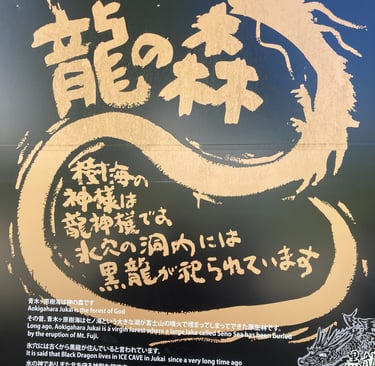 龍の森
樹海の
神様は
龍神様です
氷穴の洞内には
黒龍が祀られています
青木ヶ原樹海は神の森です
Aokigahara Jukai is the forest of God
その昔、青木ヶ原樹海はセノ海という大きな湖が富士山の噴火で埋まってしまってできた原生林です。
Long ago, Aokigahara Jukai is a virgin forest where a large lake called Seno Sea has been buried
by the eruption of Mt. Fuji.
氷穴には古くから黒龍が住んでいると言われています。
It is said that Black Dragon lives in ICE CAVE in Jukai since a very long time ago